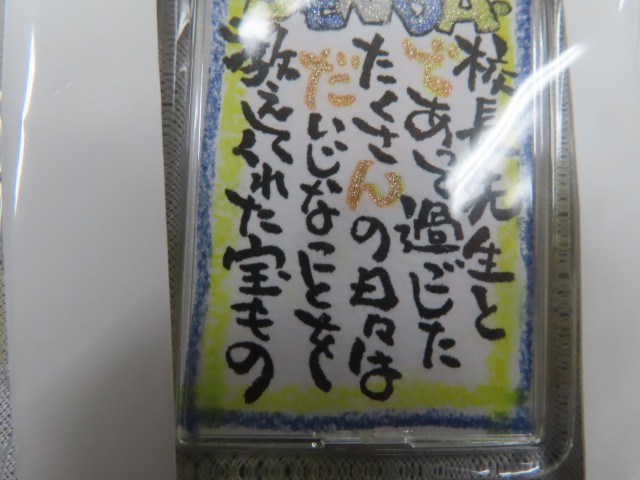 DENDA
校長先生と
であって過ごした
たくさんの日々は
だいじなことを
教えてくれた宝もの